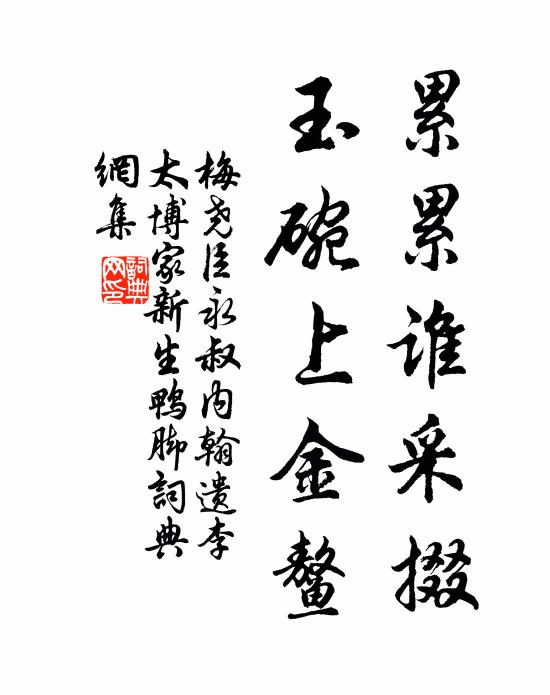 累累谁采掇
玉碗上金鳌
梅尧臣永叔内翰遗李
太博家新生鸭脚詞典
網集
詞典網印